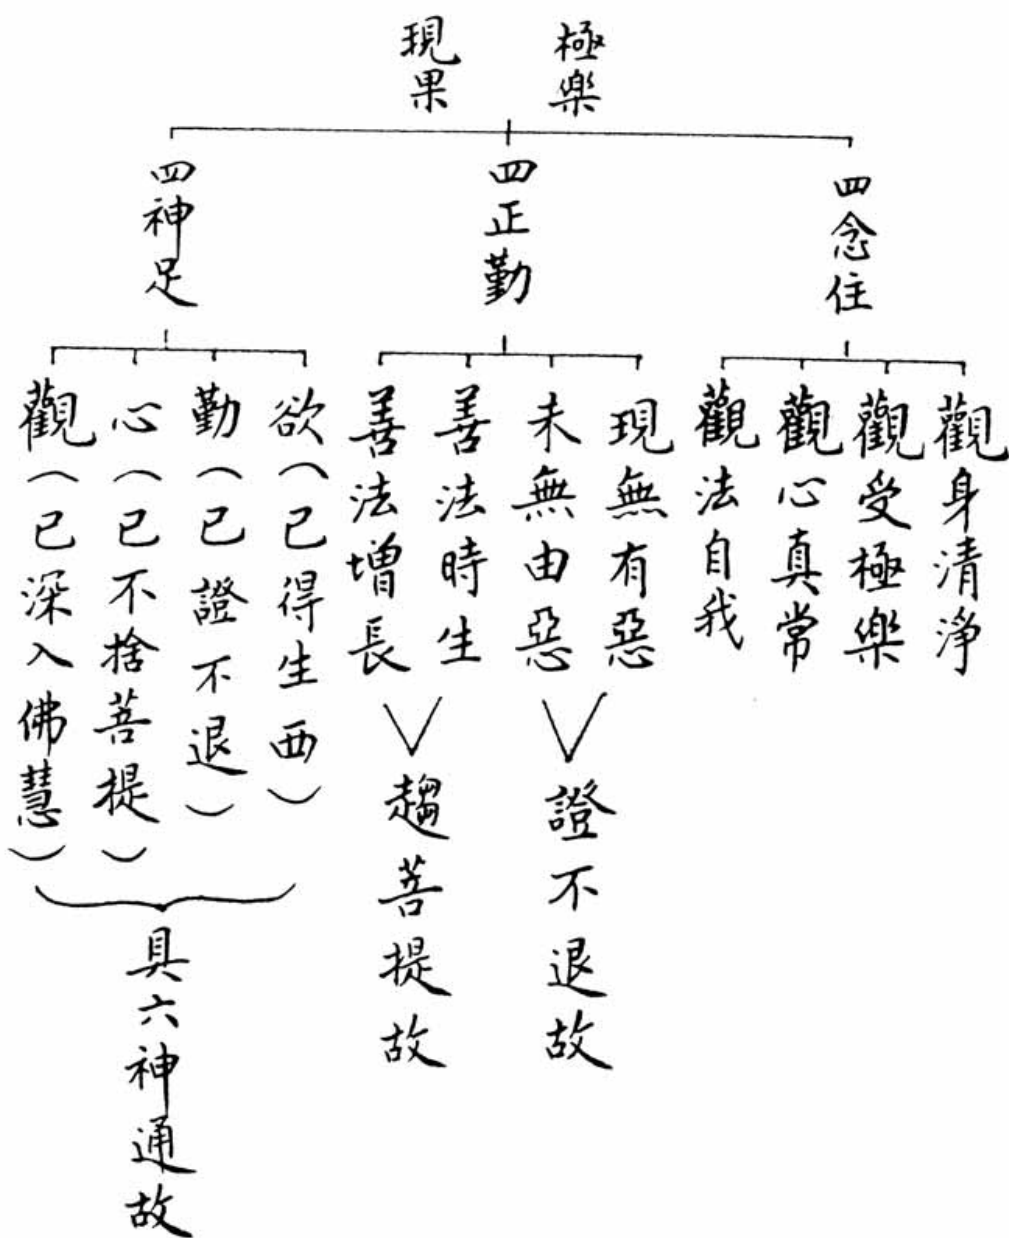 極樂
現果
四念住
觀身清淨
觀受極樂
觀心真常
觀法自我
四正勤
現無有惡
未無由惡
證不退故
善法時生
善法增長
趨菩提故
四神足
欲（已得生西）
勤（已證不退）
心（已不捨菩提）
觀（已深入佛慧）
具六神通故